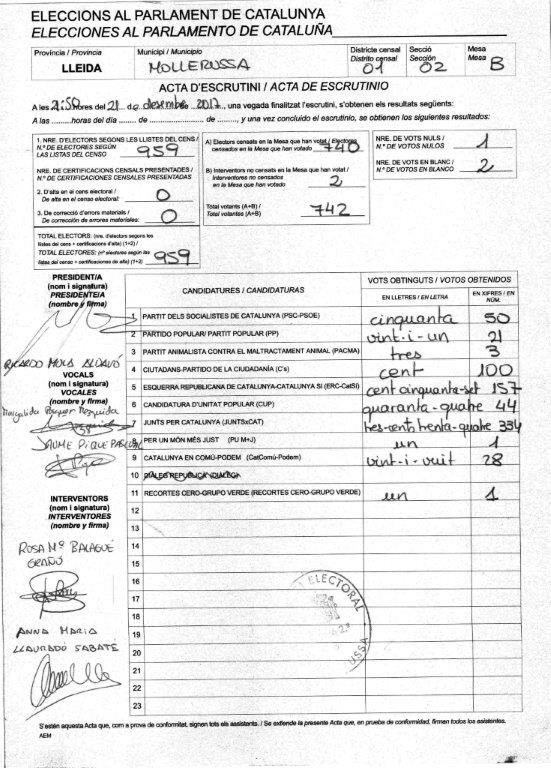 ELECCIONS AL PARLAMENT DE CATALUNYA
ELECCIONES AL PARLAMENTO DE CATALUÑA
Província / Provincia
LLEIDA
Municipi / Municipio
MOLLERUSSA
Districte censal
Distrito censal
01
Secció
Sección
02
Mesa
Mesa
B
ACTA D'ESCRUTINI / ACTA DE ESCRUTINIO
A les 21:50 hores del 21 de desembre de 2017, una vegada finalitzat l'escrutini, s'obtenen els resultats següents:
A las ........ horas del día ........ de ........ de ........, y una vez concluido el escrutinio, se obtienen los siguientes resultados:
1. NRE. D'ELECTORS SEGONS LES LLISTES DEL CENS /
N.º DE ELECTORES SEGÚN
LAS LISTAS DEL CENSO
959
NRE. DE CERTIFICACIONS CENSALS PRESENTADES /
N.º DE CERTIFICACIONES CENSALES PRESENTADAS
2. D'alta en el cens electoral /
De alta en el censo electoral:
0
3. De correcció d'errors materials /
De corrección de errores materiales:
0
TOTAL ELECTORS: (nre. d'electors segons les
llistes del cens + certificacions d'alta) (1+2) /
TOTAL ELECTORES: (nº electores según las
listas del censo + certificaciones de alta) (1+2)
959
A) Electors censats en la Mesa que han votat / Electores
censados en la Mesa que han votado
740
B) Interventors no censats en la Mesa que han votat /
Interventores no censados
en la Mesa que han votado
2
Total votants (A+B) /
Total votantes (A+B)
742
NRE. DE VOTS NULS /
N.º DE VOTOS NULOS
1
NRE. DE VOTS EN BLANC /
N.º DE VOTOS EN BLANCO
2
PRESIDENT/A
(nom i signatura)
PRESIDENTE/A
(nombre y firma)
RICARDO MOLA
VOCALS
(nom i signatura)
VOCALES
(nombre y firma)
JAUME PIQUE
INTERVENTORS
(nom i signatura)
INTERVENTORES
(nombre y firma)
ROSA Mª BALAGUÉ
GRAÑÓ
ANNA MARIA
LLAURADÓ SABATÉ
CANDIDATURES / CANDIDATURAS
VOTS OBTINGUTS / VOTOS OBTENIDOS
EN LLETRES / EN LETRA
EN XIFRES / EN NÚM.
1 PARTIT DELS SOCIALISTES DE CATALUNYA (PSC-PSOE) cinquanta 50
2 PARTIDO POPULAR/ PARTIT POPULAR (PP) vint-i-un 21
3 PARTIT ANIMALISTA CONTRA EL MALTRACTAMENT ANIMAL (PACMA) tres 3
4 CIUTADANS-PARTIDO DE LA CIUDADANÍA (C's) cent 100
5 ESQUERRA REPUBLICANA DE CATALUNYA-CATALUNYA SI (ERC-CatSí) cent cinquanta-set 157
6 CANDIDATURA D'UNITAT POPULAR (CUP) quaranta-quatre 44
7 JUNTS PER CATALUNYA (JUNTSxCAT) tres-cents trenta-quatre 334
8 PER UN MÓN MÉS JUST (PU M+J) un 1
9 CATALUNYA EN COMÚ-PODEM (CatComú-Podem) vint-i-vuit 28
10
11 RECORTES CERO-GRUPO VERDE (RECORTES CERO-GRUPO VERDE) un 1
12
13
14
15
16
17
18
19
20
21
22
23
ELECTORAL
USSA
S'estén aquesta Acta que, com a prova de conformitat, signen tots els assistents. / Se extiende la presente Acta que, en prueba de conformidad, firman todos los asistentes.
AEM